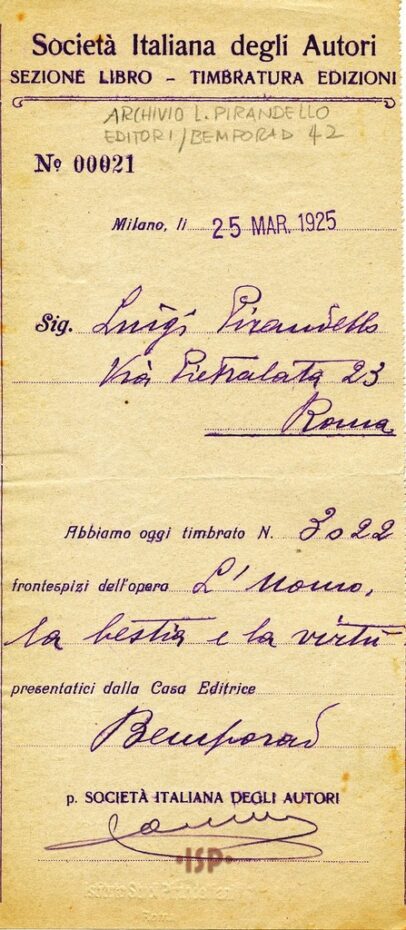 Società Italiana degli Autori
SEZIONE LIBRO – TIMBRATURA EDIZIONI
ARCHIVIO L. PIRANDELLO
EDITORI/BEMPORAD 42
Nº 00021
Milano, li 25 MAR. 1925
Sig. Luigi Pirandello
Via Pietralata 23
Roma
Abbiamo oggi timbrato N. 3022
frontespizi dell'opera L'Uomo,
la bestia e la virtù
presentatici dalla Casa Editrice
Bemporad
p. SOCIETÀ ITALIANA DEGLI AUTORI
·ISP·